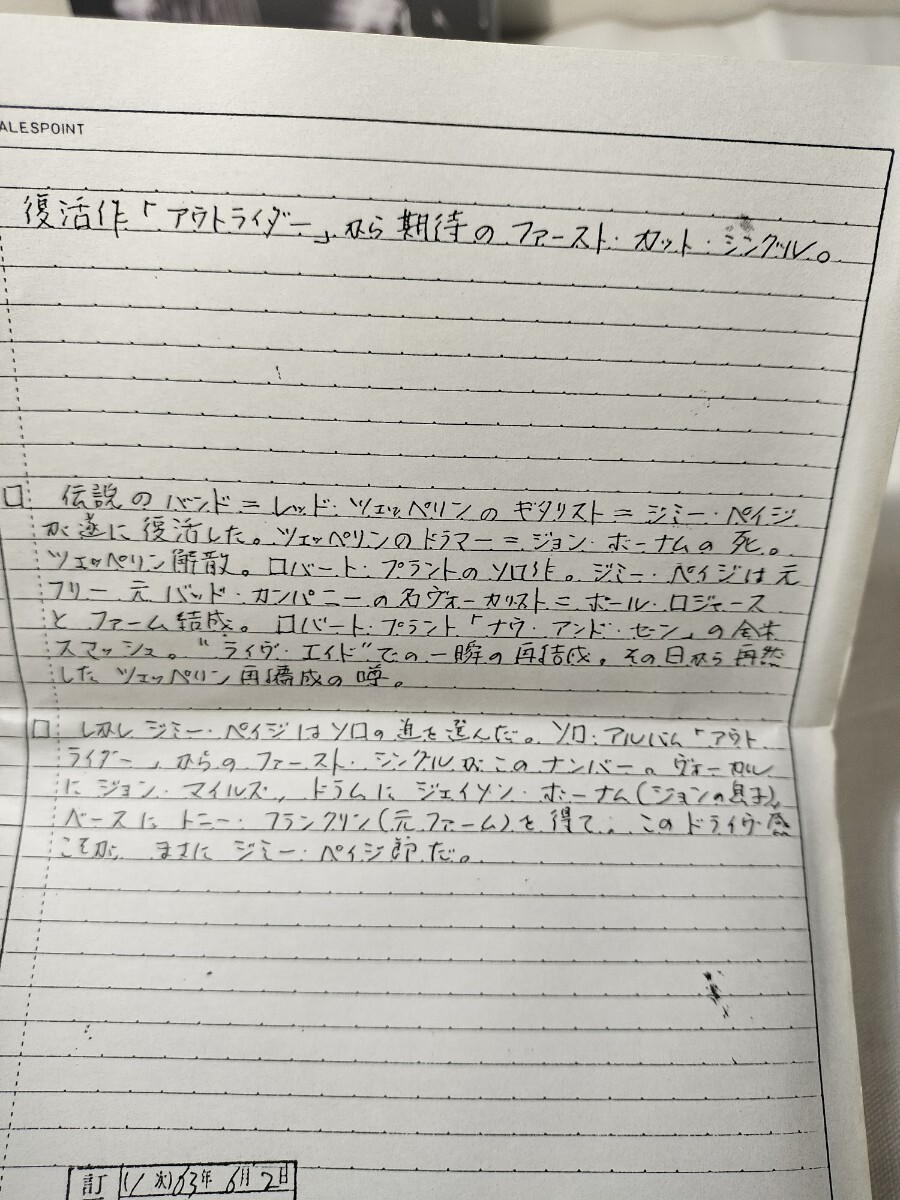 ALESPOINT
復活作「アウトライダー」から期待のファースト・カット・シングル。
□ 伝説のバンド=レッド・ツェッペリンのギタリスト=ジミー・ペイジ
が遂に復活した。ツェッペリンのドラマー=ジョン・ボーナムの死。
ツェッペリン解散。ロバート・プラントのソロ作。ジミー・ペイジは元
フリー元バッド・カンパニーの名ヴォーカリスト=ポール・ロジャース
とファーム結成。ロバート・プラント「ナウ・アンド・ゼン」の全米
スマッシュ。"ライヴ・エイド"での一瞬の再結成。その日から再燃
したツェッペリン再編成の噂。
□ しかしジミー・ペイジはソロの道を選んだ。ソロ・アルバム「アウト
ライダー」からのファースト・シングルがこのナンバー。ヴォーカル
にジョン・マイルズ、ドラムにジェイソン・ボーナム(ジョンの息子)、
ベースにトニー・フランクリン(元ファーム)を得て、このドライヴ感
こそが、まさにジミー・ペイジ節だ。
訂 (1次)63年6月2日